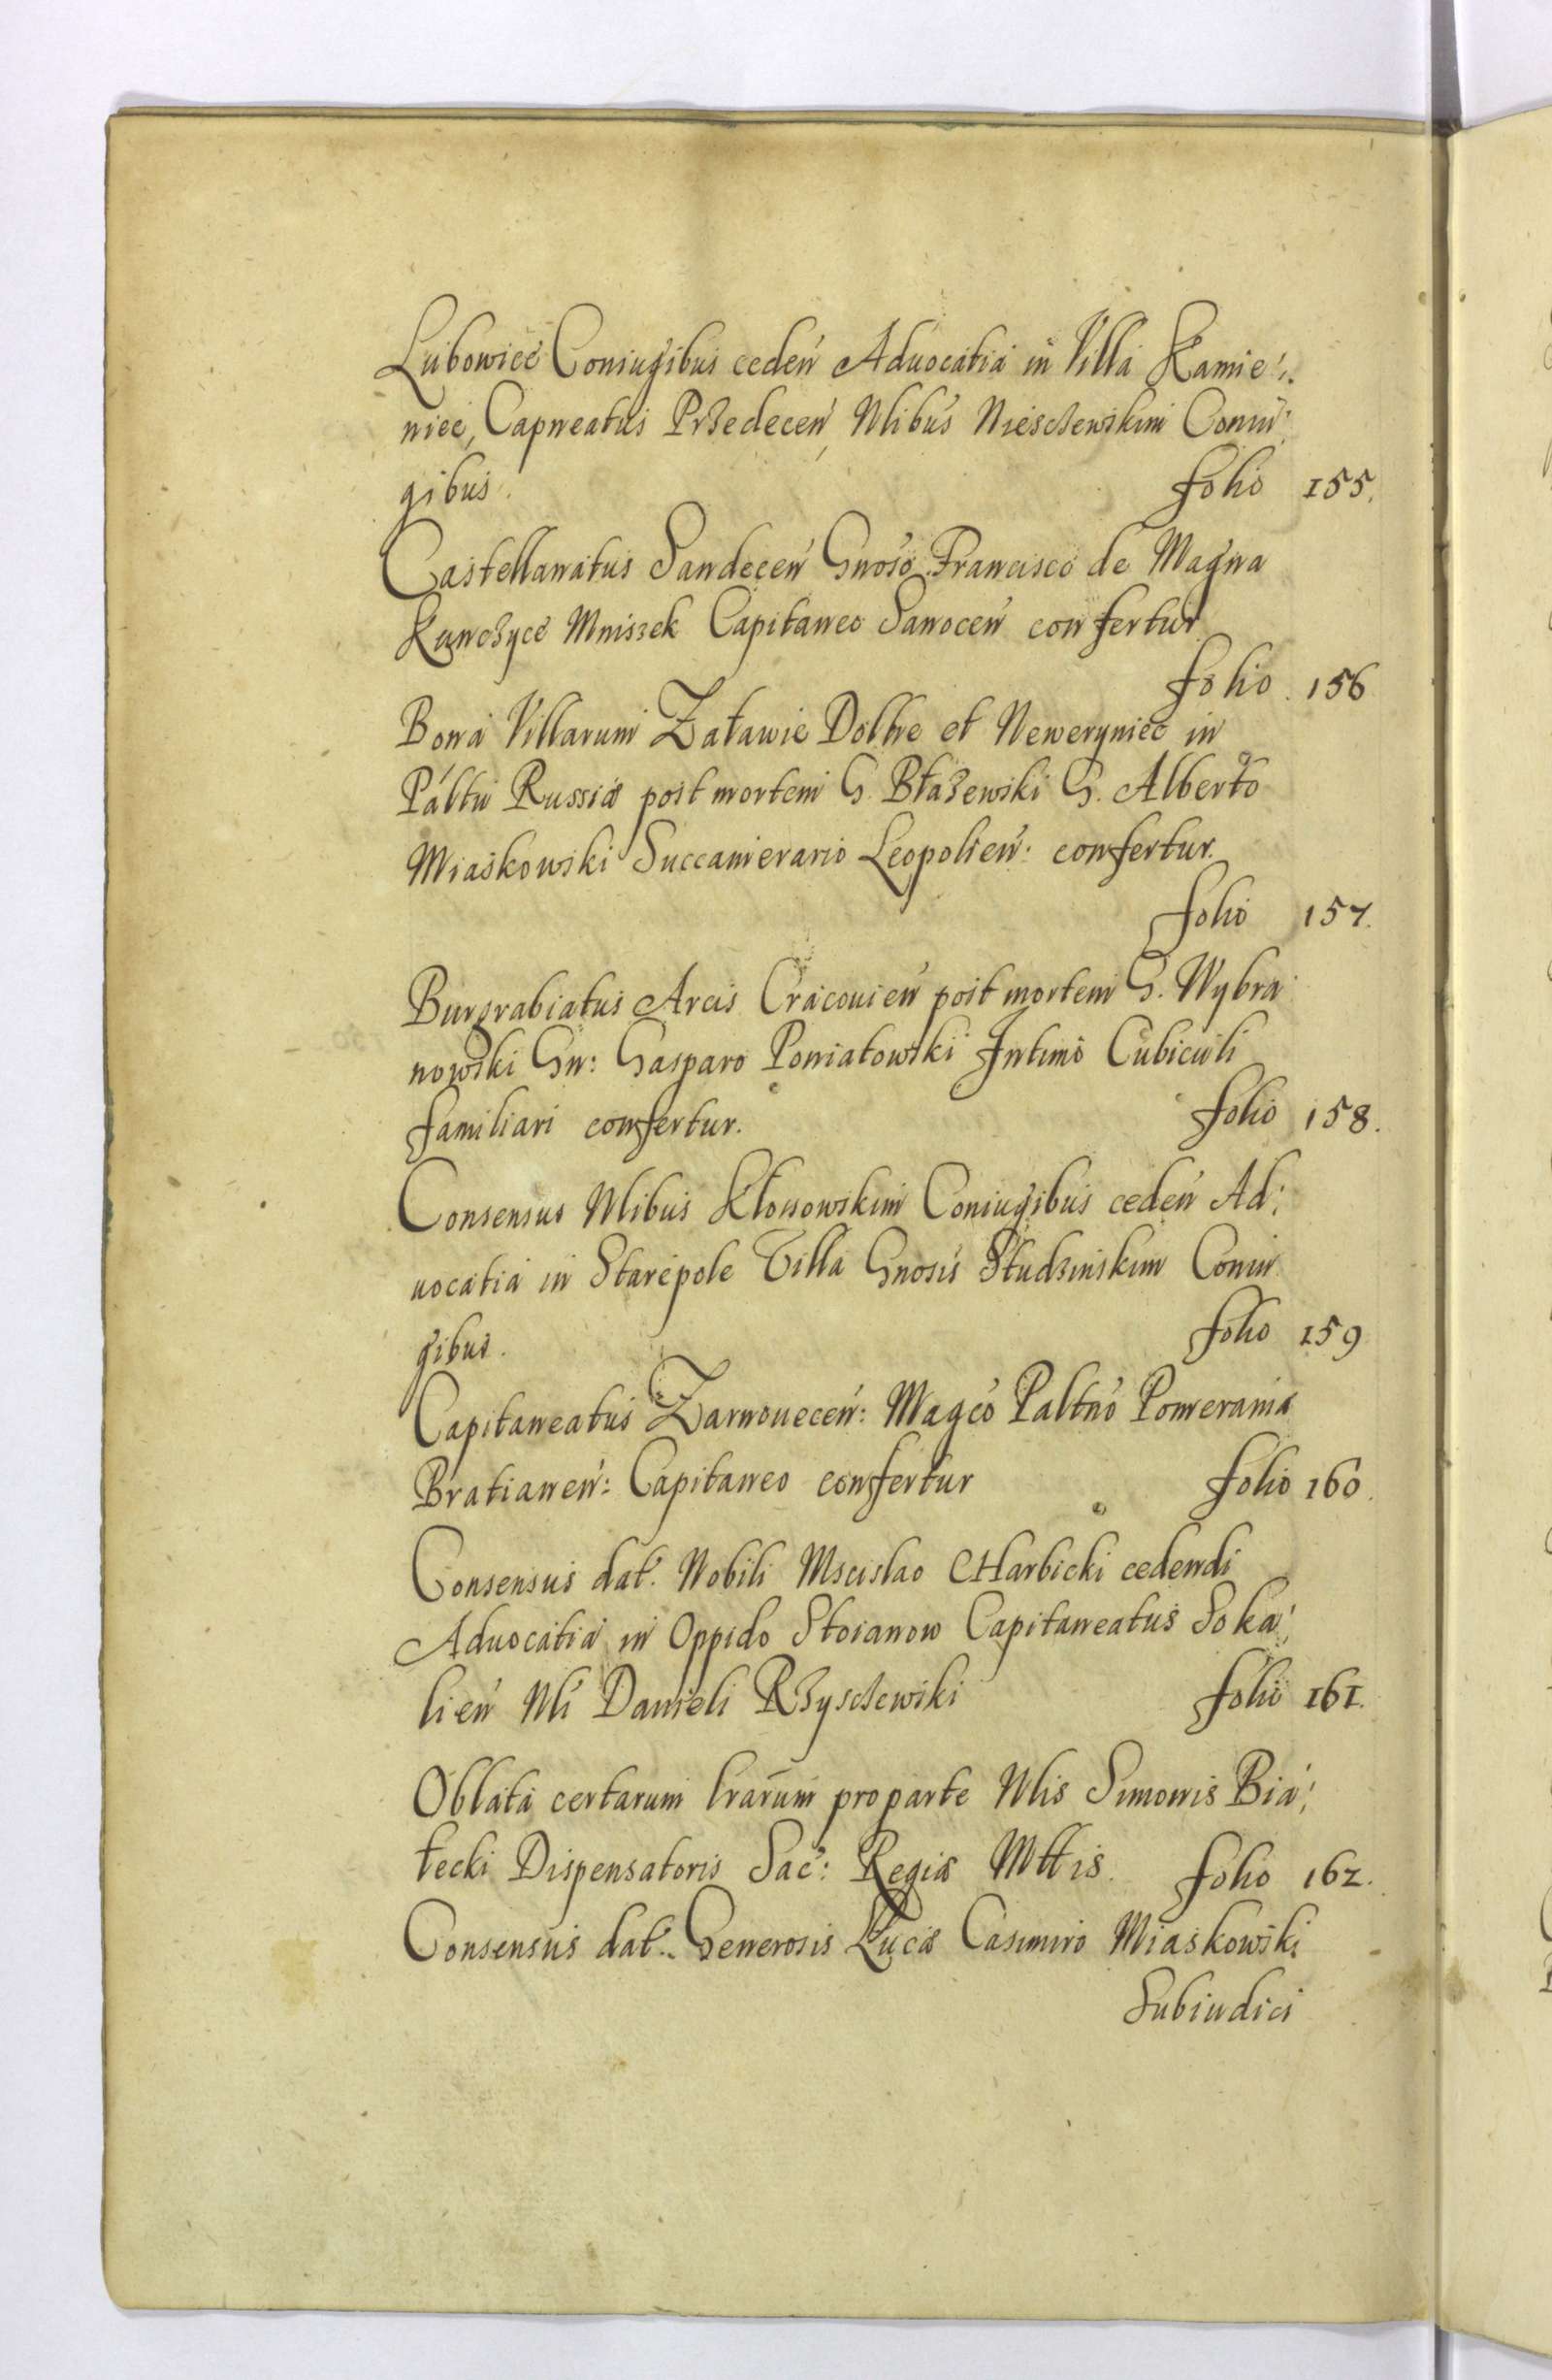 Lubowiec Coniugibus ceden Aduocatia in Villa Kamie:
niec, Capneatus Przedecen, Nlibus Niesczewskim Coniu:
gibus. folio 155.
Castellanatus Sandecen Gnoso Francisco de Magna
Kunczyce Mniszek Capitaneo Sanocen confertur
folio 156
Bona Villarum Załawie Dolhe et Neweryniec in
Páltu Russiæ post mortem G. Błażewski G. Alberto
Miaskowski Succamerario Leopolien: confertur.
folio 157.
Burgrabiatus Arcis Cracouien post mortem G. Wybra
nowski Gn: Gasparo Poniatowski Intimo Cubiculi
familiari confertur. folio 158.
Consensus Nlibus Kłossowskim Coniugibus ceden Ad:
uocatia in Starepole Villa Gnosis Studzinskim Coniu
gibus. folio 159
Capitaneatus Zarnouecen: Magco Paltno Pomeraniæ
Bratianen: Capitaneo confertur folio 160.
Consensus dat. Nobili Mscislao Charbicki cedendi
Aduocatia in Oppido Stoianow Capitaneatus Soka:
lien Nli Danieli Rzysczewski folio 161.
Oblata certarum lrarum pro parte Nlis Simonis Bia:
łecki Dispensatoris Sac: Regiæ Mttis. folio 162.
Consensus dat. Generosis Lucæ Casimiro Miaskowski
Subiudici